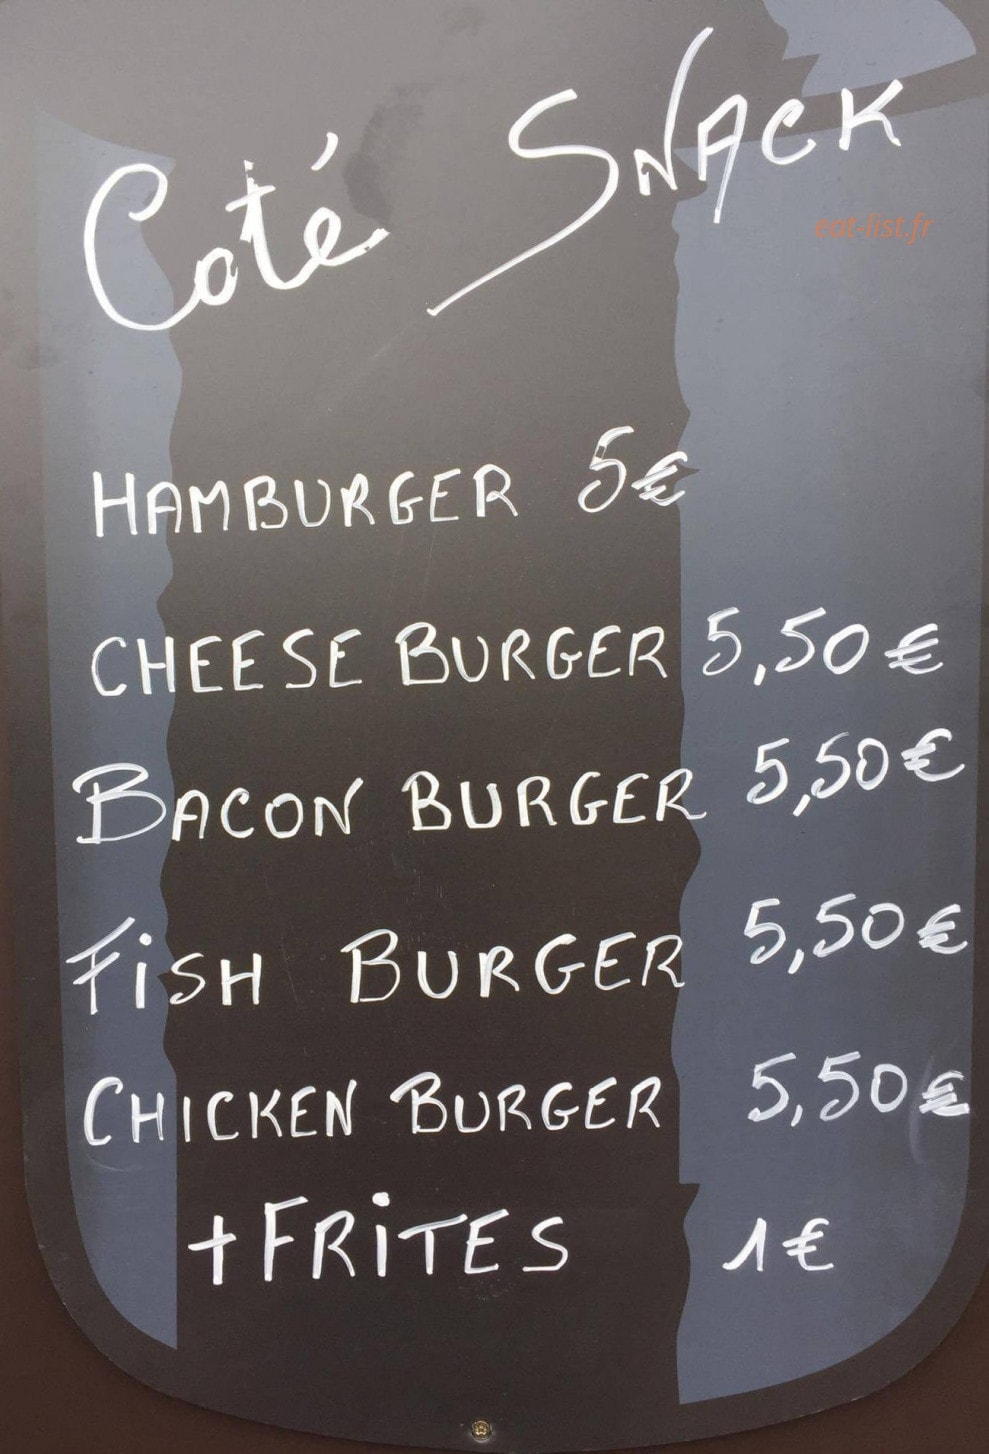 Coté SNACK
eat-list.fr
HAMBURGER 5€
CHEESE BURGER 5,50€
BACON BURGER 5,50€
FiSH BURGER 5,50€
CHICKEN BURGER 5,50€
+FRiTES 1€